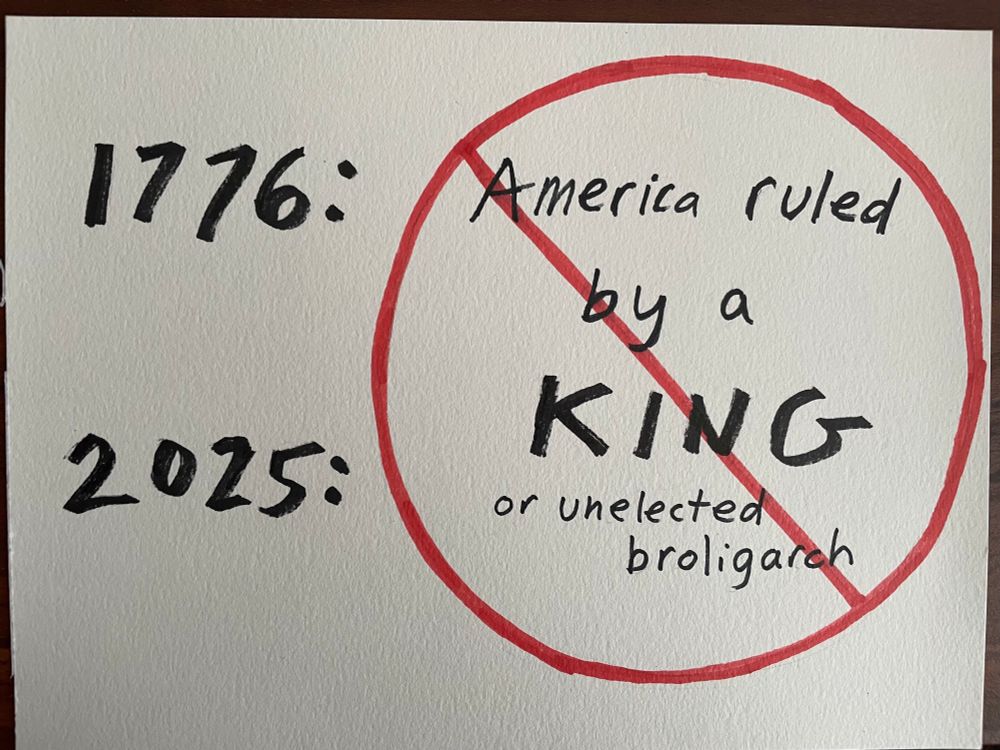 1776:
America ruled
by a
KING
2025:
or unelected
broligarch